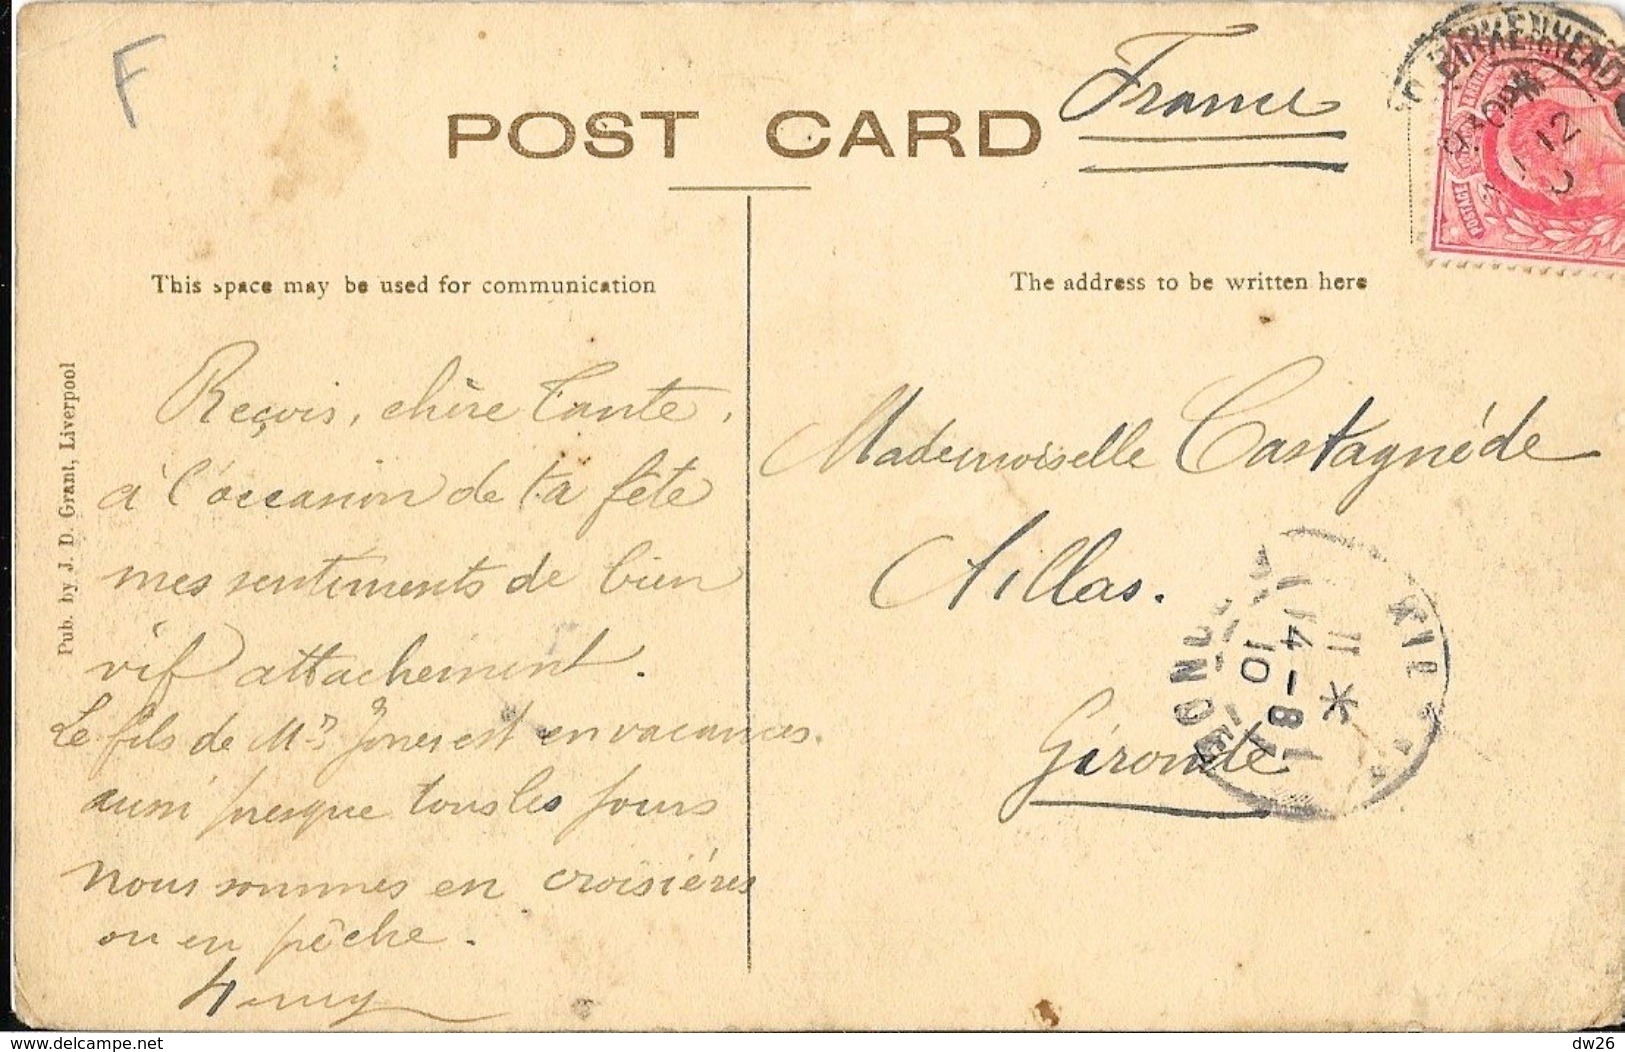 F
POST CARD
France
BIRKENHEAD
12
POSTAGE
This space may be used for communication
The address to be written here
Pub. by J. D. Grant, Liverpool
Reçois, chère Tante,
à l'occasion de ta fête
mes sentiments de bien
vif attachement.
Le fils de Mrs Jones est en vacances.
aussi presque tous les jours
nous sommes en croisières
ou en pêche.
Henry
Mademoiselle Castagnéde
Aillas.
Gironde
14-8
10
delcampe.net
dw26